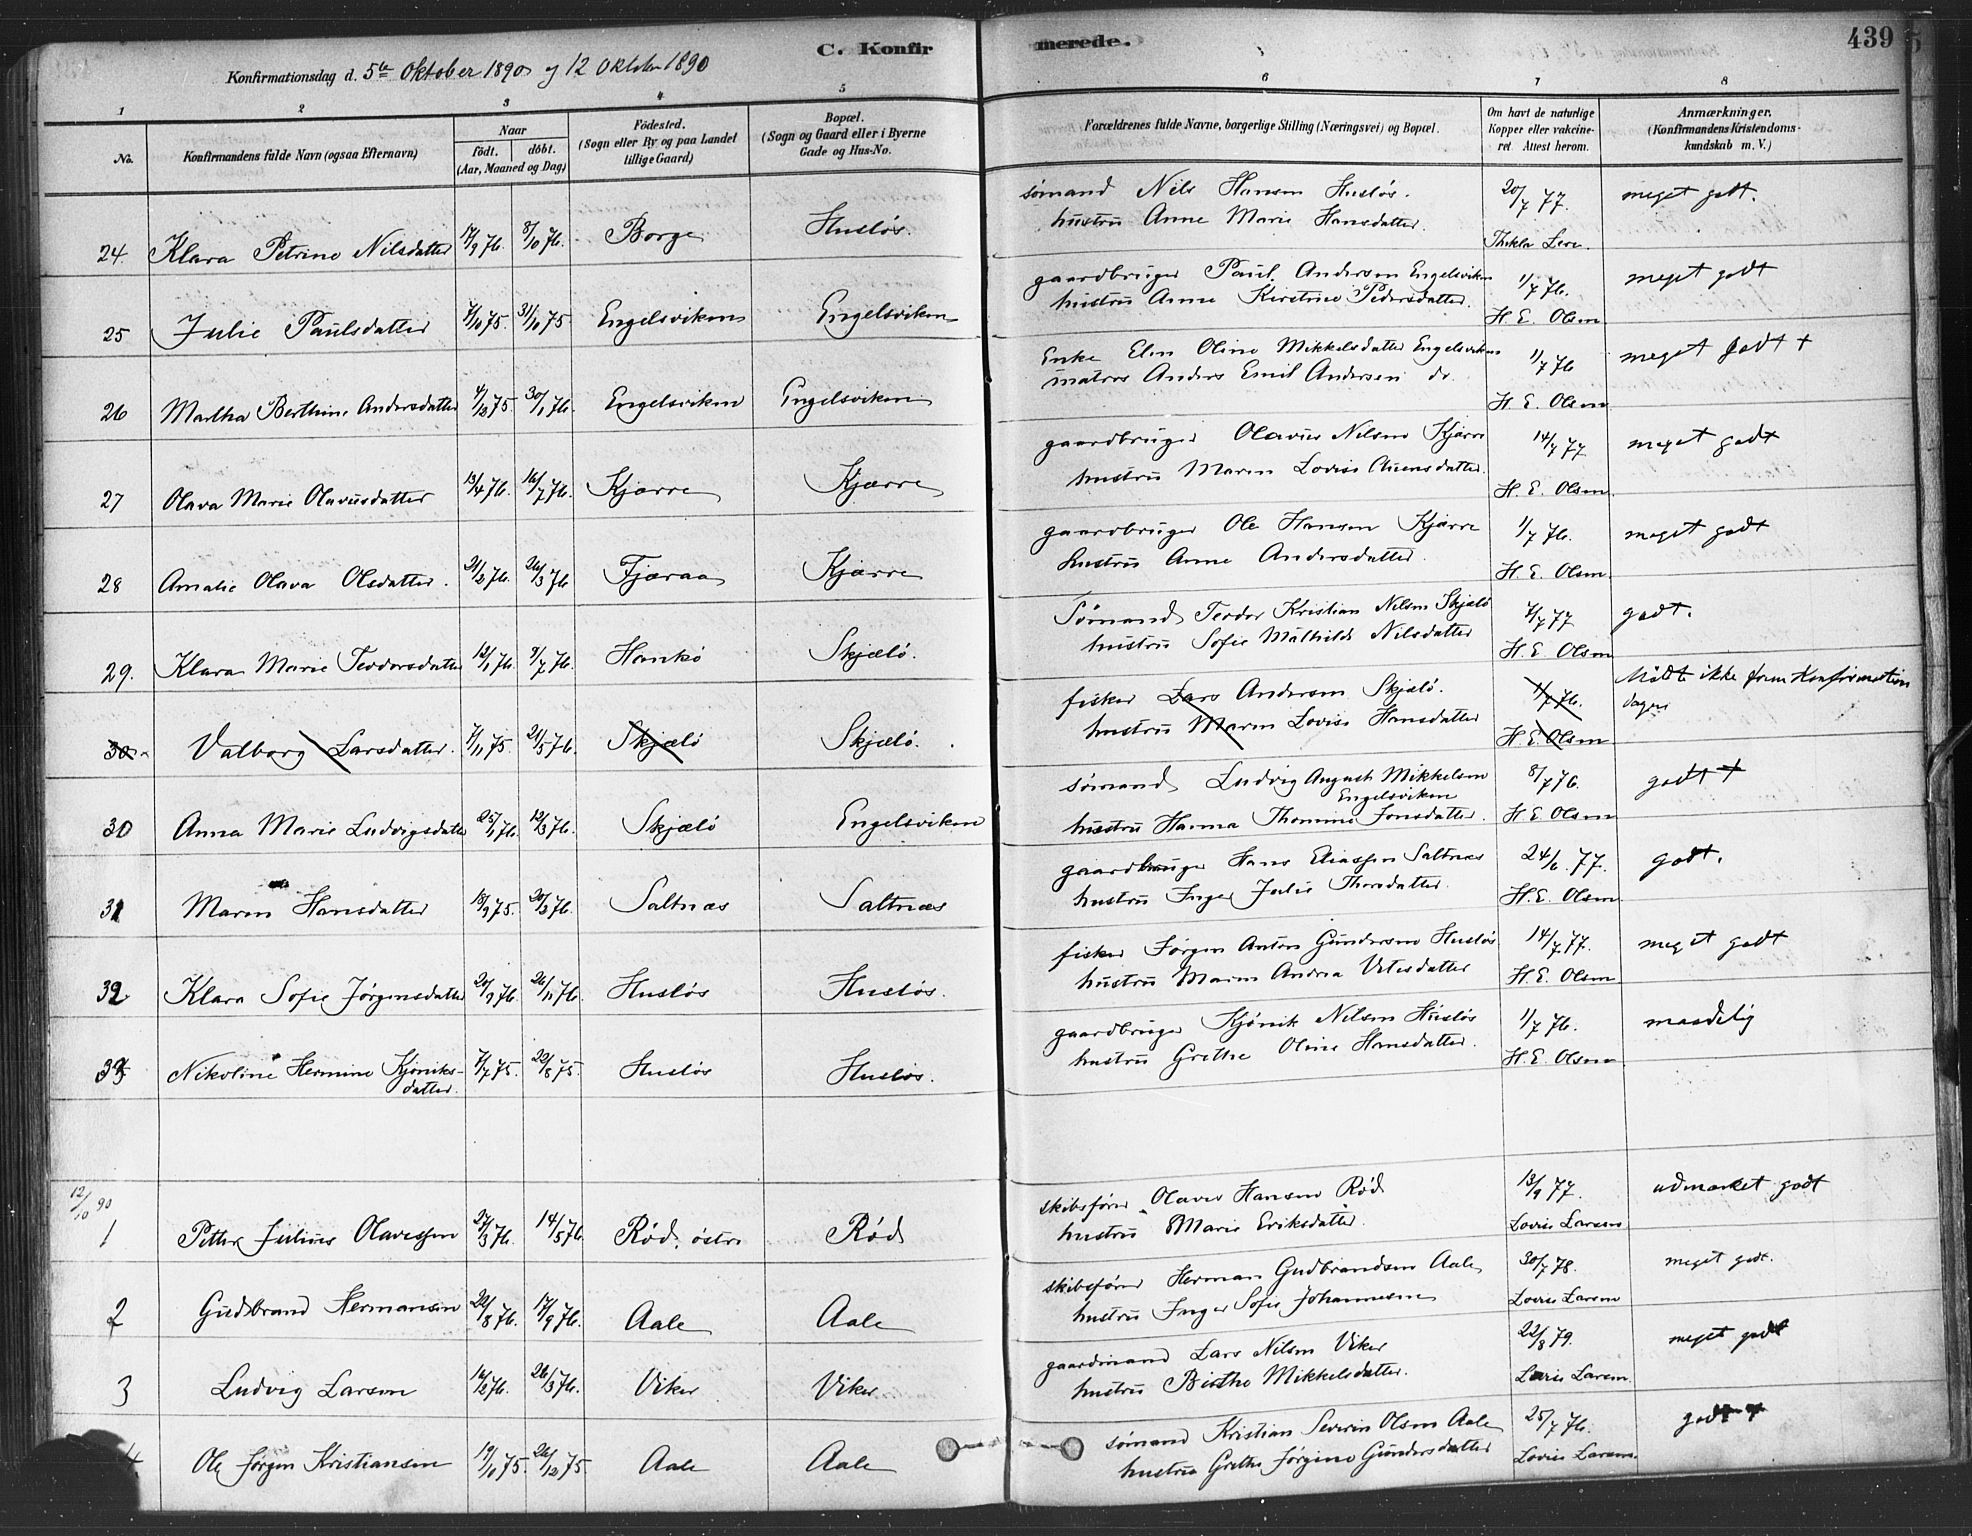 439
C. Konfirmerede.
Konfirmationsdag d. 5te Oktober 1890 og 12 Oktober 1890
1 2 3 4 5 6 7 8
No.
Konfirmandens fulde Navn (ogsaa Efternavn)
Naar
født. døbt.
(Aar, Maaned og Dag)
Fødested.
(Sogn eller By og paa Landet
tillige Gaard)
Bopæl.
(Sogn og Gaard eller i Byerne
Gade og Hus-No.
Forældrenes fulde Navne, borgerlige Stilling (Næringsvei) og Bopæl.
Om havt de naturlige
Kopper eller vakcine-
ret. Attest herom.
Anmærkninger.
(Konfirmandens Kristendoms-
kundskab m. V.)
24. Klara Petrine Nilsdatter 17/9 76. 8/10 76. Borge Husløs.
sømand Nils Hansen Husløs. 20/7 77. meget godt.
hustru Anne Marie Hansdatter. Thekla
25 Julie Paulsdatter 7/10 75. 31/10 75. Engelsviken Engelsviken
gaardbruger Paul Andersen Engelsviken 1/7 76. meget godt
hustru Anne Kirstine Pedersdatter. H. E. Olsen
26 Martha Berthine Andersdatter 4/12 75. 30/1 76. Engelsviken Engelsviken
Enke Elen Oline Mikkelsdatter Engelsviken 1/7 76 meget godt +
matros Anders Emil Andersen do. H. E. Olsen
27 Olava Marie Olavusdatter 13/4 76. 16/7 76. Kjærre Kjærre
gaardbruger Olavus Nilsen Kjærre 14/7 77 meget godt
hustru Maren Lovise H. E. Olsen
28 Amalie Olava Olsdatter. 21/2 76. 26/3 76 Fjæraa Kjærre
gaardbruger Ole Hansen Kjærre 1/7 76. meget godt
hustru Anne Andersdatter. H. E. Olsen.
29. Klara Marie Teodorsdatter 12/1 76. 9/7 76. Hankø Skjælø.
Sømand Teodor Kristian Nilsen Skjælø 7/7 77 godt.
hustru Sofie Mathilde Nilsdatter H. E. Olsen
30 Valborg Larsdatter. 7/11 75. 21/5 76. Skjælø Skjælø.
fisker Lars Andersen Skjælø. 1/7 76. Mødte ikke frem Konfirmations
hustru Maren Lovise Hansdatter H. E. Olsen dagen
30 Anna Marie Ludvigsdatter 25/1 76. 12/3 76. Skjælø Engelsviken
sømand Ludvig August Mikkelsen 8/7 76. godt +
Engelsviken
hustru Hanna Thomine Jonsdatter. H. E. Olsen
31 Maren Hansdatter 18/9 75. 20/2 76. Saltnæs Saltnæs
gaardbruger Hans Eliassen Saltnæs 24/6 77. godt.
hustru Inger Julie Thorsdatter. H. E. Olsen
32 Klara Sofie Jørgensdatter 20/9 76. 26/11 76. Husløs Husløs.
fisker Jørgen Anton Gundersen Husløs 14/7 77. meget godt
hustru Maren Andrea H. E. Olsen
33 Nikoline Hermine Kjøniks-
datter. 7/7 75. 22/8 75. Husløs Husløs.
gaardbruger Kjønik Nilsen Husløs 1/7 76. maadelig
hustru Grethe Oline Hansdatter. H. E. Olsen
12/10 90
1 Petter Julius Olavessen 27/3 76. 14/5 76 Rød, østre Rød
skibsfører Olaves Hansen Rød 13/9 77. udmærket godt
hustru Marie Eriksdatter. Lovise Larsen
2 Gudbrand Hermansen 22/8 76. 17/9 76. Aale Aale
skibsfører Herman Gudbrandsen Aale 30/7 78. meget godt.
hustru Inger Sofie Johannesen Lovise Larsen
3 Ludvig Larsen 16/2 76. 26/3 76. Viker Viker
gaardmand Lars Nilsen Viker 22/8 79. meget godt
hustru Birthe Mikkelsdatter. Lovise Larsen
4. Ole Jørgen Kristiansen 19/10 75. 26/12 75 Aale Aale
sømand Kristian Severin Olsen Aale 25/7 76. godt
hustru Grethe Jørgine Gundersdatter Lovise Larsen